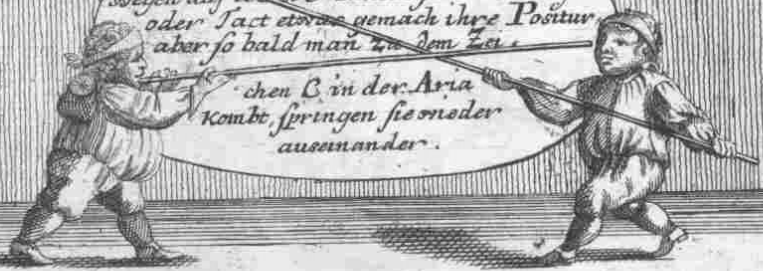 oder Tact etwas gemach ihre Positur,
aber so bald man zu dem Zei,
chen C in der Aria
Kombt, springen sie wieder
auseinander.